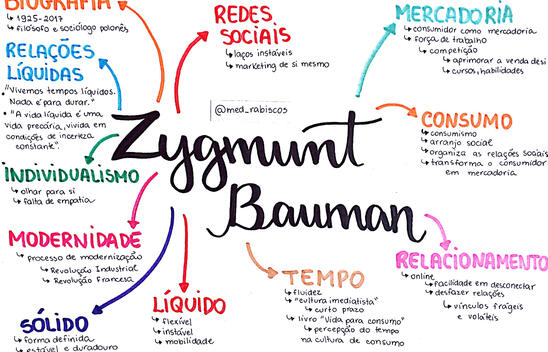 BIOGRAFIA
↳ 1925-2017
↳ filósofo e sociólogo polonês
RELAÇÕES
LÍQUIDAS
"Vivemos tempos líquidos.
Nada é para durar."
• "A vida líquida é uma
vida precária, vivida em
condições de incerteza
constante".
INDIVIDUALISMO
↳ olhar para si
↳ falta de empatia
MODERNIDADE
↳ processo de modernização
↳ Revolução Industrial
↳ Revolução Francesa
SÓLIDO
↳ forma definida
↳ estável e duradouro
REDES
SOCIAIS
↳ laços instáveis
↳ marketing de si mesmo
@med_rabiscos
Zygmunt
Bauman
LÍQUIDO
↳ flexível
↳ instável
↳ mobilidade
TEMPO
↳ fluidez
↳ "cultura imediatista"
↳ curto prazo
↳ livro "Vida para consumo"
↳ percepção do tempo
na cultura de consumo
MERCADORIA
↳ consumidor como mercadoria
↳ força de trabalho
↳ competição
↳ aprimorar a venda desi
↳ cursos, habilidades
CONSUMO
↳ consumismo
↳ arranjo social
↳ organiza as relações sociais
↳ transforma o consumidor
em mercadoria
RELACIONAMENTO
↳ online
↳ facilidade em desconectar
↳ desfazer relações
↳ vínculos frágeis
e voláteis